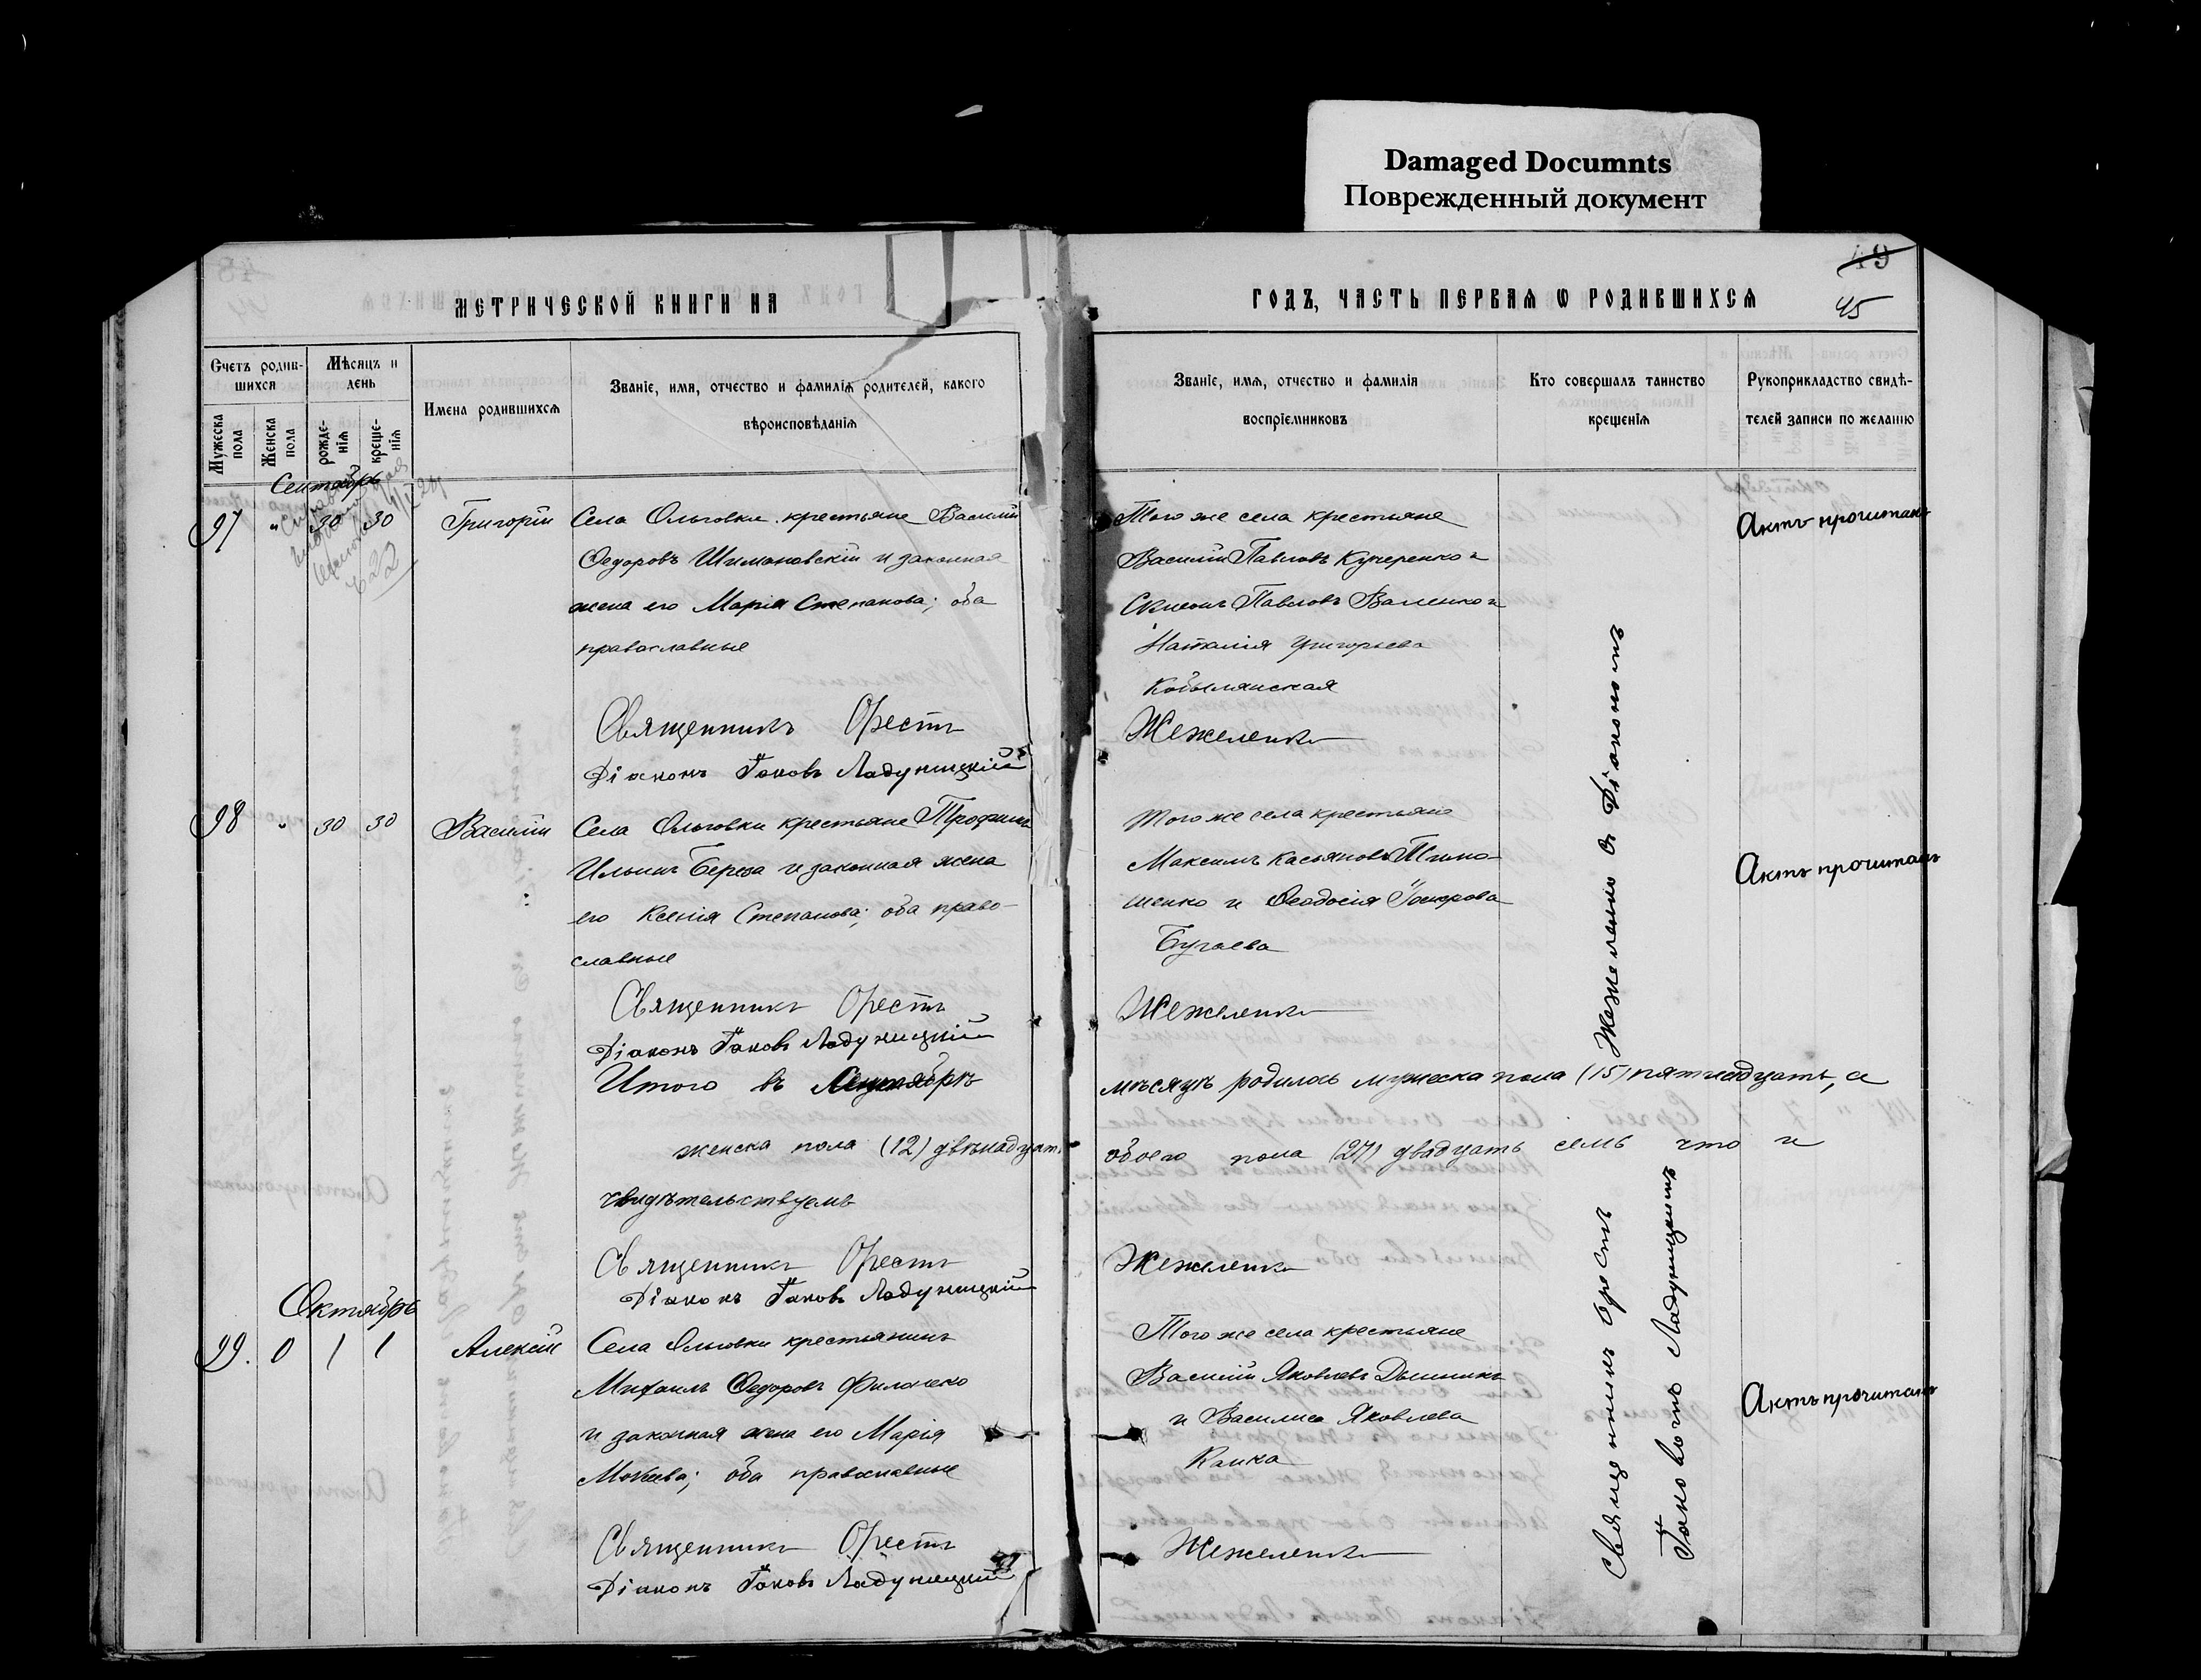 Damaged Documnts
Поврежденный документ
МЕТРИЧЕСКОЙ КНИГИ НА
ГОДЪ, ЧАСТЬ ПЕРВАЯ Ѡ РОДИВШИХСЯ
49
45
Счетъ родив-
шихся
Мѣсяцъ и
день
Мужеска
пола
Женска
пола
рожде-
нія
креще-
нія
Имена родившихся
Званіе, имя, отчество и фамилія родителей, какого
вѣроисповѣданія
Званіе, имя, отчество и фамилія
воспріемниковъ
Кто совершалъ таинство
крещенія
Рукоприкладство свидѣ-
телей записи по желанію
Сентябрь
97 " 30 30 Григорій
Села Ольговки крестьяне Василій
Ѳедоровъ Шимановскій и законная
жена его Марія Степанова; оба
православные
Священникъ Орестъ
Діаконъ Іаковъ Ладуницкій
Того же села крестьяне
Василій Павловъ Кучеренко и
ПавловъВаленко и
Наталія Григорьева
Кобылянская
Жежеленко
Актъ прочитанъ
98 " 30 30 Василій
Села Ольговки крестьяне Трофимъ
Ильинъ Береза и законная жена
его Ксенія Степанова; оба право-
славные
Священникъ Орестъ
Діаконъ Іаковъ Ладуницкій
Того же села крестьяне
Максимъ Касьяновъ Тимо-
шенко и Ѳеодосія
Бугаева
Жежеленко
Актъ прочитанъ
Итого въ Сентябрѣ мѣсяцѣ родилось мужеска пола (15) пятнадцать, а
женска пола (12) двѣнадцать обоего пола (27) двадцать семь что и
свидѣтельствуемъ
Священникъ Орестъ Жежеленко
Діаконъ Іаковъ Ладуницкій
Октябрь
99. 0 1 1 Алексій
Села Ольговки крестьянинъ
Михаилъ Ѳедоровъ Филоненко
и законная жена его Марія
Мокіева; оба православные
Священникъ Орестъ
Діаконъ Іаковъ Ладуницкій
Того же села крестьяне
Василій Яковлевъ
и Василиса Яковлева
Жежеленко
Актъ прочитанъ
Священникъ Орестъ Жежеленко съ Діакономъ
Іаковомъ Ладуницкимъ